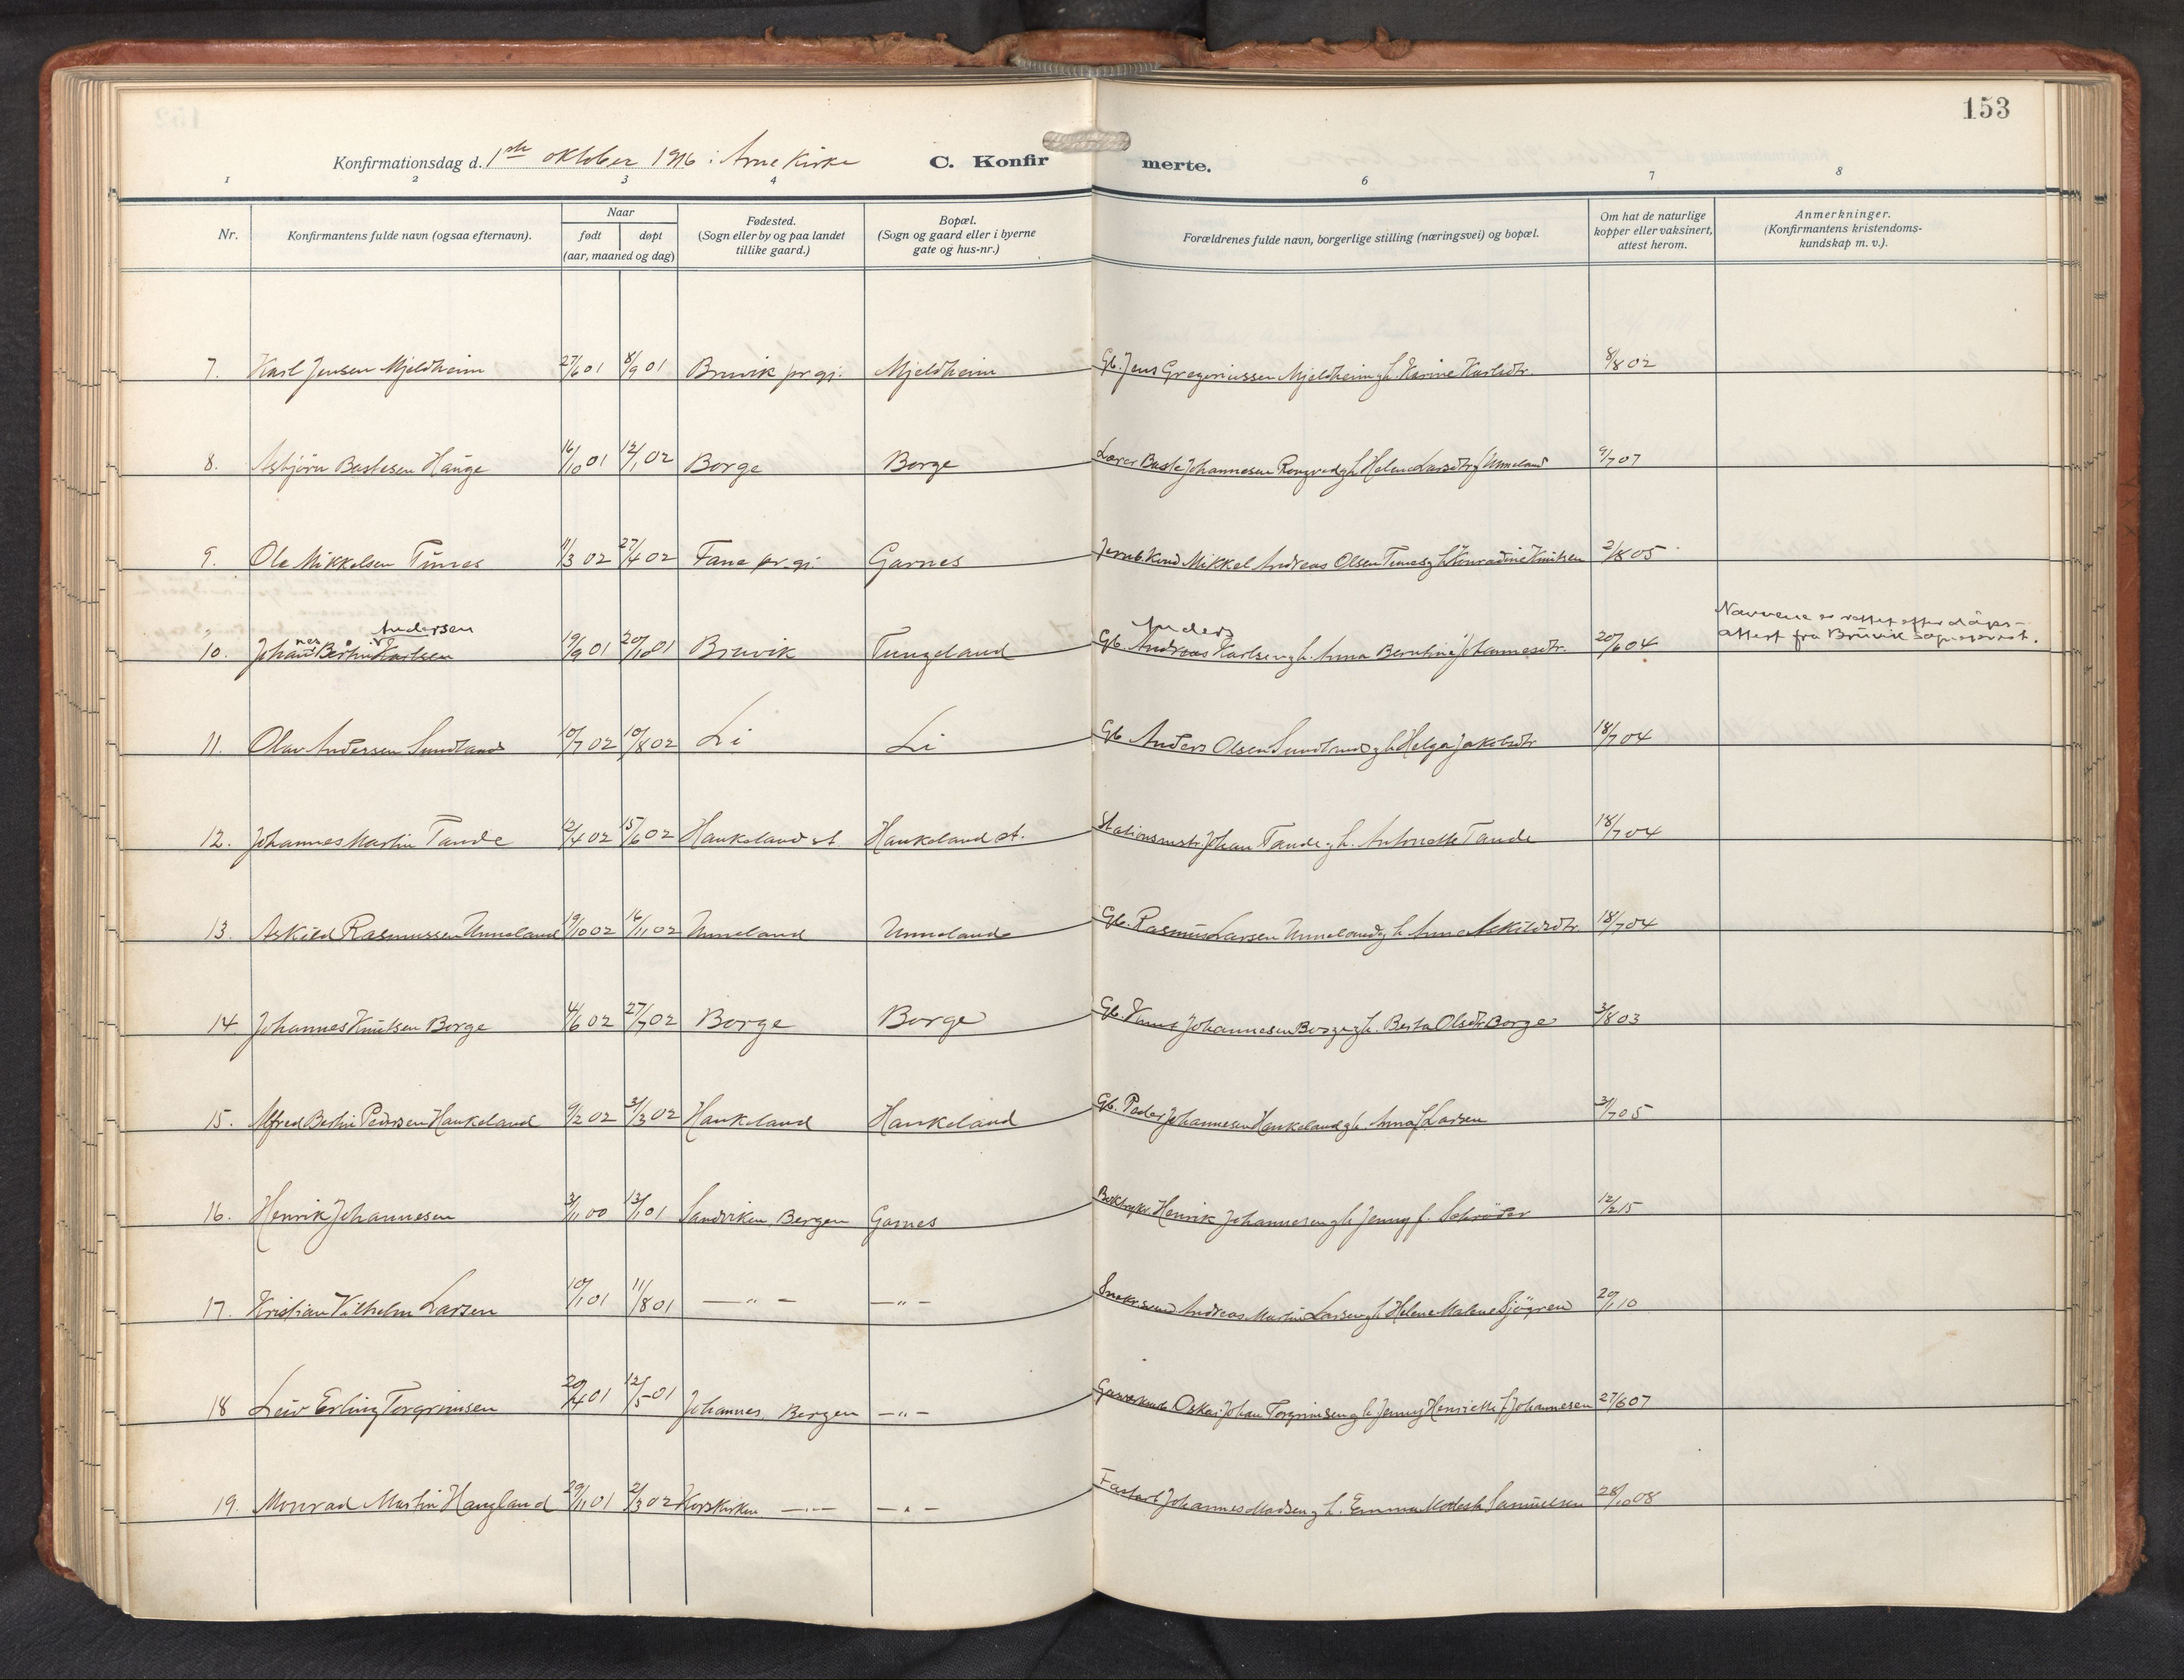 153
Konfirmationsdag d. 1ste oktober 1916 i Arne Kirke C. Konfirmerte.
1 2 3 4 6 7 8
Nr. Konfirmantens fulde navn (ogsaa efternavn). Naar født døpt (aar, maaned og dag) Fødested. (Sogn eller by og paa landet tillike gaard.) Bopæl. (Sogn og gaard eller i byerne gate og hus-nr.) Forældrenes fulde navn, borgerlige stilling (næringsvei) og bopæl. Om hat de naturlige kopper eller vaksinert, attest herom. Anmerkninger. (Konfirmantens kristendomskundskap m. v.).
7. Karl Jensen Mjeldheim 27/6 01 8/9 01 Bruvik pr.gj. Mjeldheim Gb. Jens Gregoriussen Mjeldheim g h. Karine Karlsdtr. 8/8 02
8. Asbjörn Bastesen Hauge 16/10 01 12/1 02 Borge Borge Lærer Baste Johannesen g h Helene Larsdtr f Unneland 9/7 07
9. Ole Mikkelsen Tunes 11/3 02 27/4 02 Fane pr.gj. Garnes Jernb. Mikkel Andreas Olsen Tunes g h Konradine Knutsen 2/8 05
Andersen Anders Navnene er rettet efter dåps-
10. Johannes Bertin Karlsen 19/9 01 20/10 01 Bruvik Tungeland Gb. Andreas Karlsen g h. Anna Berntine Johannesdtr. 20/6 04 attest fra Bruvik sogneprest.
11. Olav Andersen Sundland 10/7 02 10/8 02 Li Li Gb Anders Olsen Sundland g h Helga Jakobsdtr 18/7 04
12. Johannes Martin Tande 12/4 02 15/6 02 Haukeland st. Haukeland st. Stationsmstr. Johan Tande g h. Antonette Tande 18/7 04
13. Askild Rasmussen Unneland 19/10 02 16/11 02 Unneland Unneland Gb. Rasmus Larsen Unneland g h Anna Askildsdtr. 18/7 04
14. Johannes Knutsen Borge 4/6 02 27/7 02 Borge Borge Gb. Knut Johannesen Borge g h. Berta Olsdtr Borge 3/8 03
15. Alfred Bertin Pedersen Haukeland 9/2 02 31/3 02 Haukeland Haukeland Gb. Peder Johannesen Haukeland g h. Anna f Larsen 3/7 05
16. Henrik Johannesen 3/11 00 13/1 01 Sandviken Bergen Garnes Boktrykr Henrik Johannesen g h Jenny f. Schröder 12/2 15
17. Kristian Vilhelm Larsen 10/1 01 11/8 01 — " — — " — Andreas Martin Larsen g h Helene Malene Sjögren 20/1 10
18 Leiv Erling Torgrimsen 20/4 01 12/5 01 Johannes. Bergen — " — Oskar Johan Torgrimsen g h Jenny Henriette f Johannesen 27/6 07
19. Monrad Martin Haugland 29/11 01 2/3 02 Korskirken — " — — " — Johannes Madsen g h. Emma Samuelsen 28/10 08